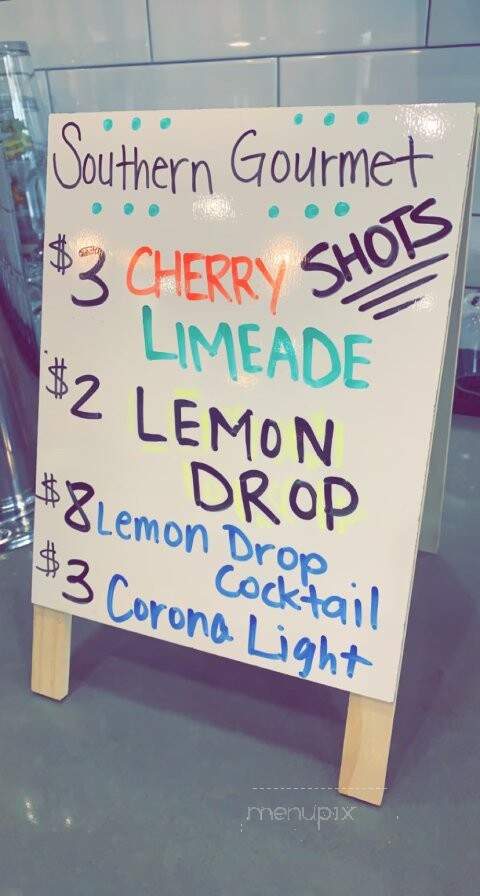 Southern Gourmet
$3 CHERRY SHOTS
LIMEADE
$2 LEMON
DROP
$8 Lemon Drop
Cocktail
$3 Corona Light
menupix